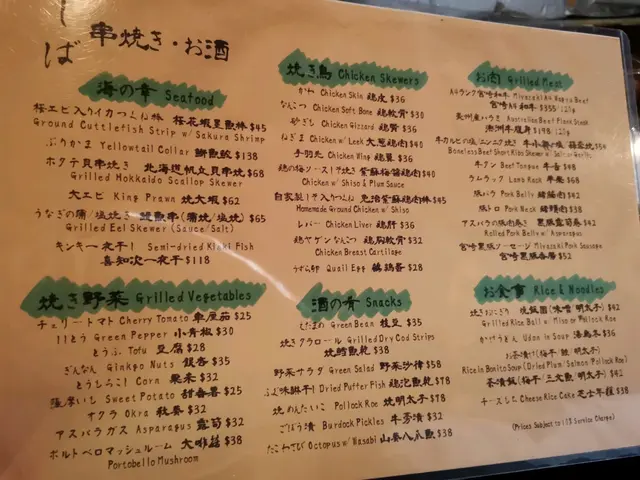 しば
串焼き・お酒
海の幸 Seafood
桜エビ入りイカつくね棒 $45
Ground Cuttlefish Strip w/ Sakura Shrimp
ぶりかま Yellowtail Collar $138
ホタテ貝串焼き 北海道帆立貝串焼 $68
Grilled Hokkaido Scallop Skewer
大エビ King Prawn 燒大蝦 $62
うなぎの蒲/塩焼き (蒲焼/塩焼) $65
Grilled Eel Skewer (Sauce/Salt)
キンキ一夜干し Semi-dried Kinki Fish
喜知次一夜干 $118
焼き野菜 Grilled Vegetables
チェリートマト Cherry Tomato 車厘茄 $25
ししとう Green Pepper 小青椒 $30
とうふ Tofu 豆腐 $28
ぎんなん Ginkgo Nuts 銀杏 $35
とうもろこし Corn 粟米 $32
薩摩いも Sweet Potato 甜番薯 $25
オクラ Okra 秋葵 $32
アスパラガス Asparagus 露筍 $32
ポルトベロマッシュルーム 大啡菇 $38
Portobello Mushroom
焼き鳥 Chicken Skewers
かわ Chicken Skin 鶏皮 $36
なんこつ Chicken Soft Bone 鶏軟骨 $30
砂ぎも Chicken Gizzard 鶏腎 $36
ねぎま Chicken w/ Leek 大葱鶏肉 $40
手羽先 Chicken Wing 鶏翼 $36
鶏の梅ソース・しそ焼き 紫蘇梅醤鶏肉 $40
Chicken w/ Shiso & Plum Sauce
自家製しそ入りつくね 免治紫蘇鶏肉棒 $45
Homemade Ground Chicken w/ Shiso
レバー Chicken Liver 鶏肝 $36
鶏ヤゲンなんこつ 鶏胸軟骨 $32
Chicken Breast Cartilage
うずら卵 Quail Egg 鵪鶉蛋 $28
酒の肴 Snacks
えだまめ Green Bean 枝豆 $35
焼きタラロール Grilled Dry Cod Strips
焼鱈魚乾 $38
野菜サラダ Green Salad 野菜沙律 $58
ふぐ味醂干し Dried Puffer Fish 鶏泡魚乾 $78
焼めんたいこ Pollock Roe 焼明太子 $78
ごぼう漬 Burdock Pickles 牛蒡漬 $32
たこわさび Octopus w/ Wasabi 山葵八爪魚 $38
お肉 Grilled Meat
A4ランク宮崎和牛 Miyazaki A4 Wagyu Beef
宮崎A4和牛 $355/125g
Australian Beef Flank Steak
澳洲牛腹身 $198/125g
$59
Boneless Beef Short Ribs Skewer w/ Garlic
牛タン Beef Tongue 牛舌 $48
ラムラック Lamb Rack 羊架 $68
豚バラ Pork Belly 豬腩肉 $42
豚トロ Pork Neck 豬頸肉 $38
アスパラの豚肉巻き 露筍豚肉卷 $42
Rolled Pork Belly w/ Asparagus
宮崎黒豚ソーセージ Miyazaki Pork Sausage
宮崎黒豚香腸 $52
お食事 Rice & Noodles
焼きおにぎり 焼飯團 (味噌 明太子) $42
Grilled Rice Ball w/ Miso or Pollock Roe
かけうどん Udon in Soup 湯烏冬 $36
お茶漬け (梅干 鮭 明太子)
Rice in Bonito Soup (Dried Plum/Salmon/Pollock Roe)
茶漬飯 (梅干/三文魚/明太子) $42
チーズした Cheese Rice Cake 芝士年糕 $38
(Prices Subject to 10% Service Charge)